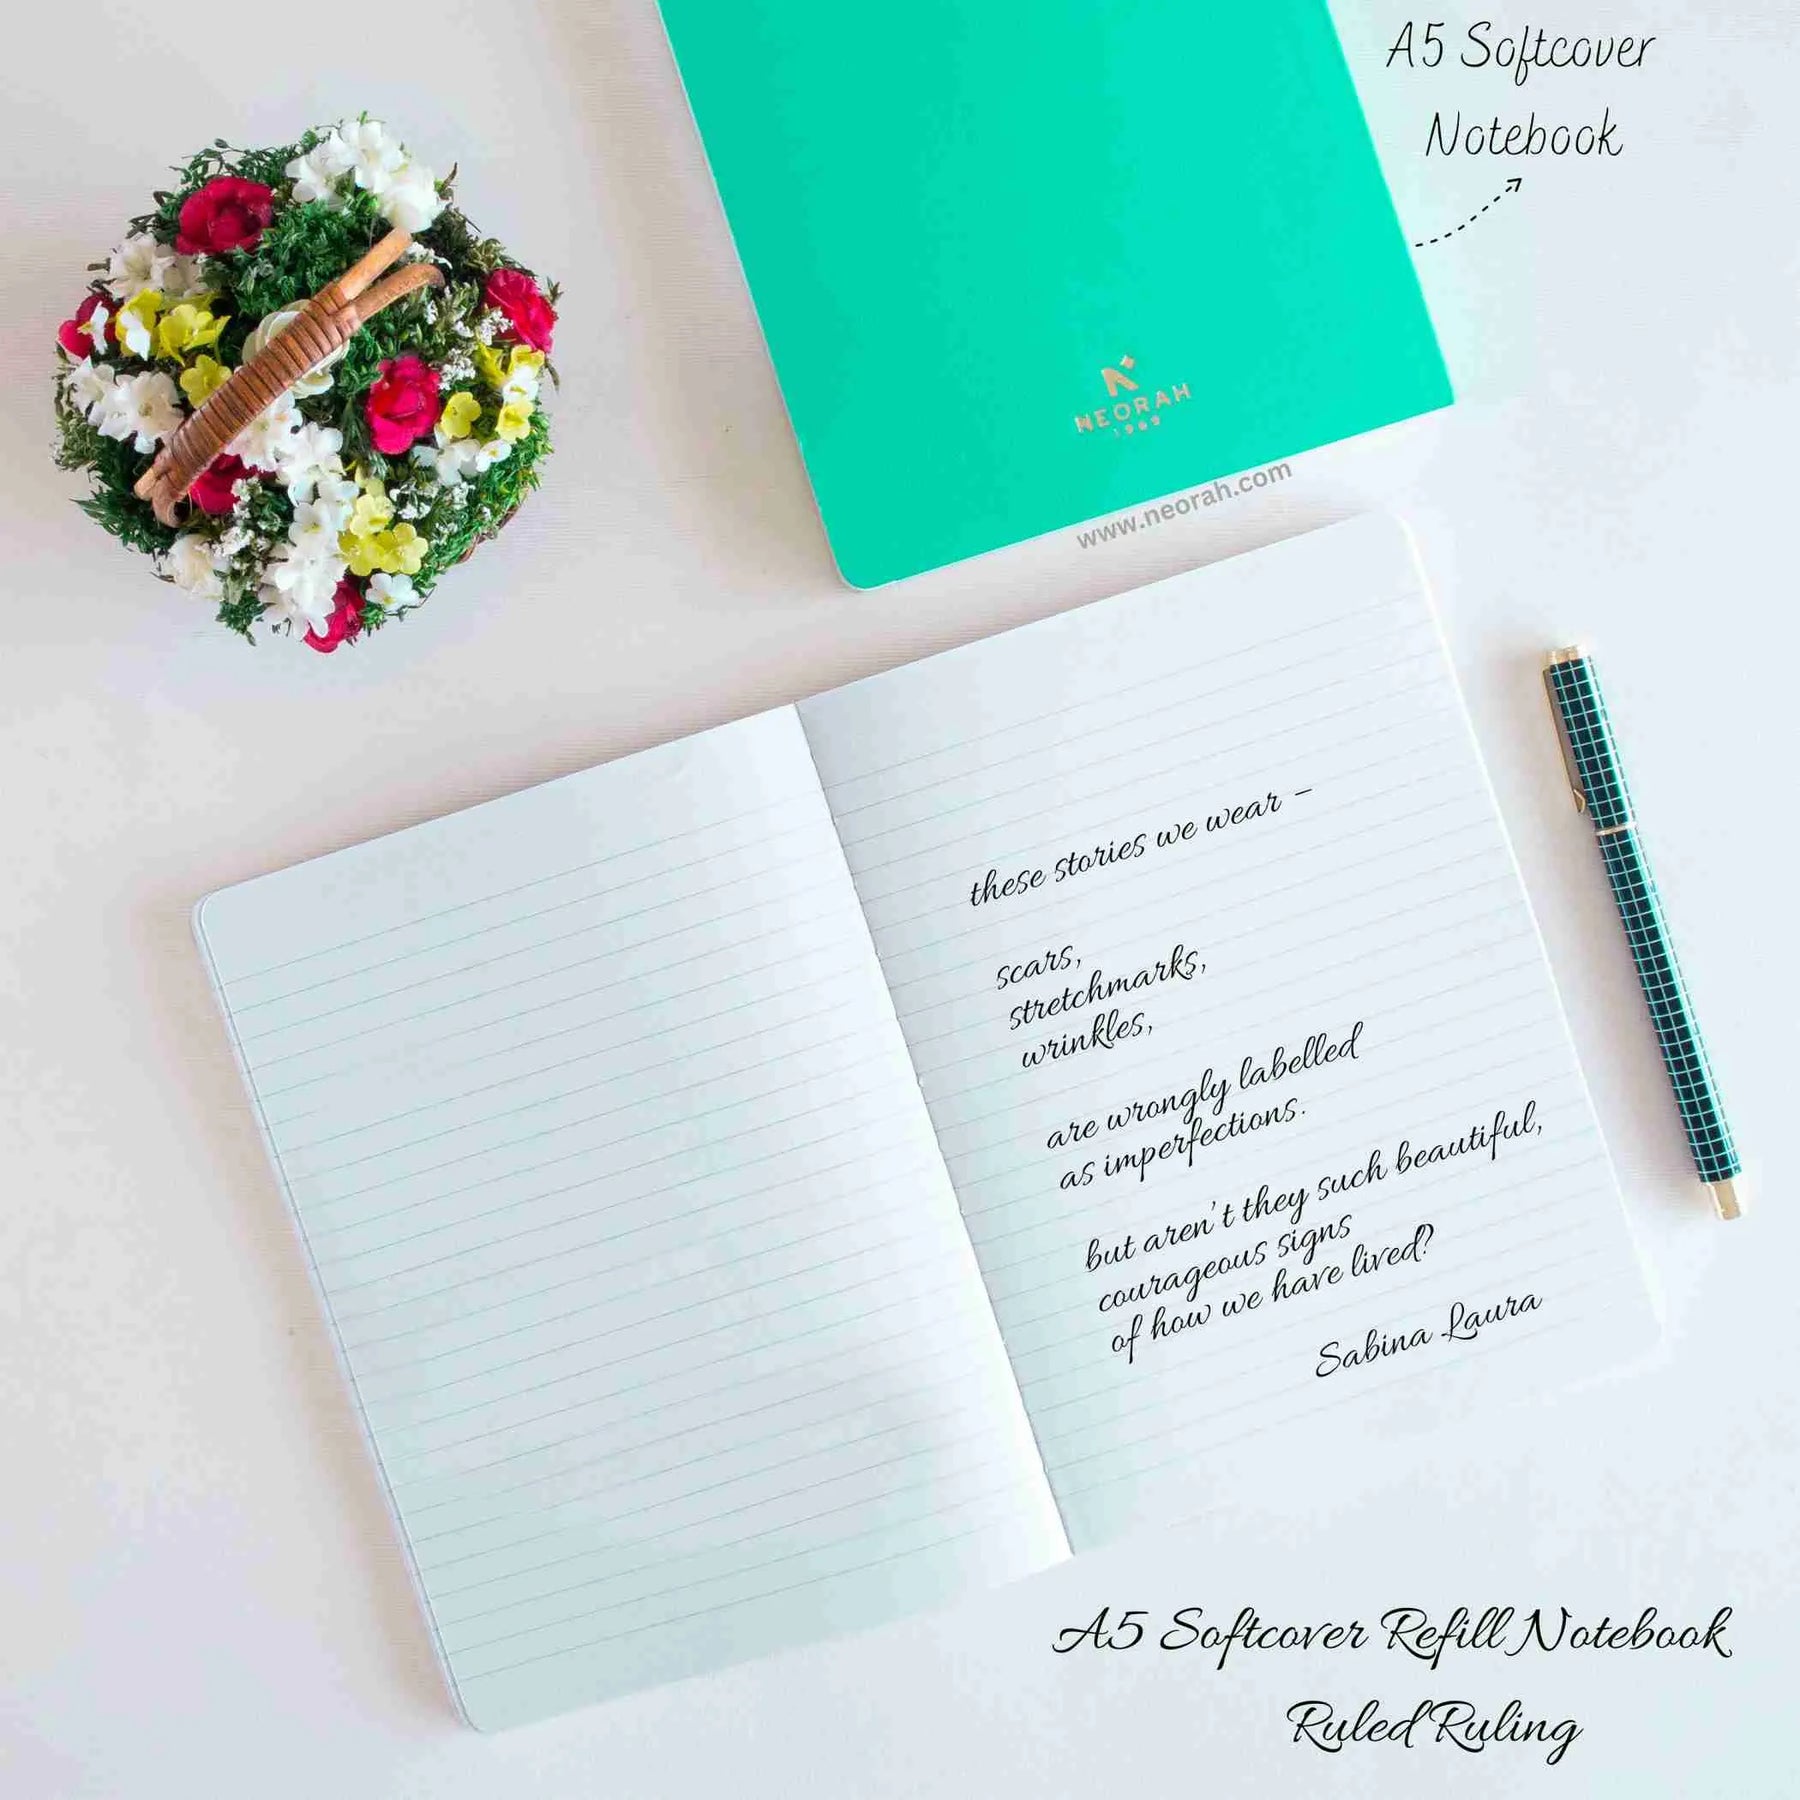 A5 Softcover
Notebook
NEORAH
1969
www.neorah.com
these stories we wear –
scars,
stretchmarks,
wrinkles,
are wrongly labelled
as imperfections.
but aren't they such beautiful,
courageous signs
of how we have lived?
Sabina Laura
A5 Softcover Refill Notebook
Ruled Ruling